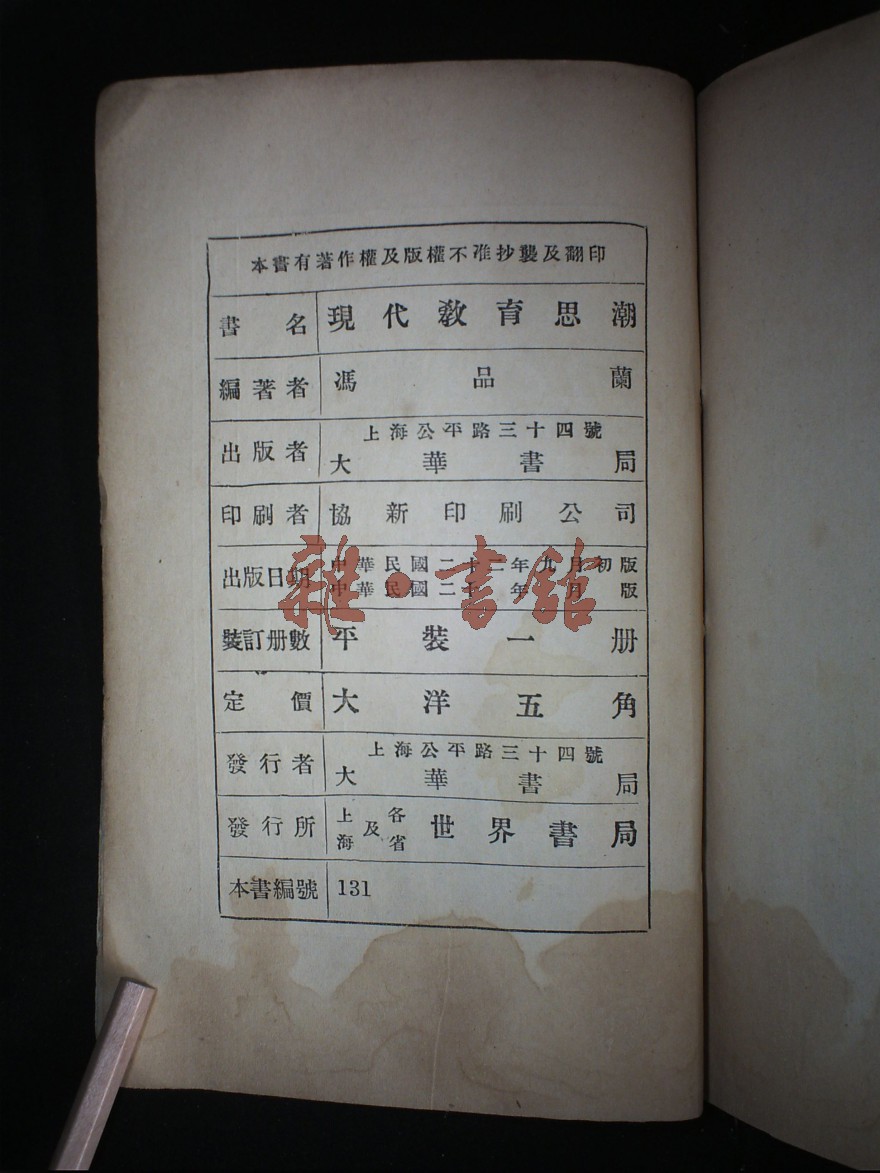 本書有著作權及版權不准抄襲及翻印
書名 現代教育思潮
編著者 馮品蘭
出版者 上海公平路三十四號
大華書局
印刷者 協新印刷公司
出版日期 中華民國二十二年九月初版
中華民國二十 年 月 版
裝訂册數 平裝一册
定價 大洋五角
發行者 上海公平路三十四號
大華書局
發行所 上海及各省 世界書局
本書編號 131
雜·書館